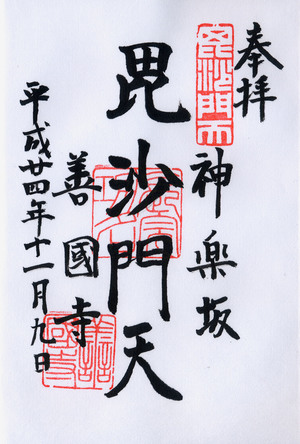 奉拝
神楽坂
毘沙門天
毘沙門天
善國寺
平成廿四年十一月九日